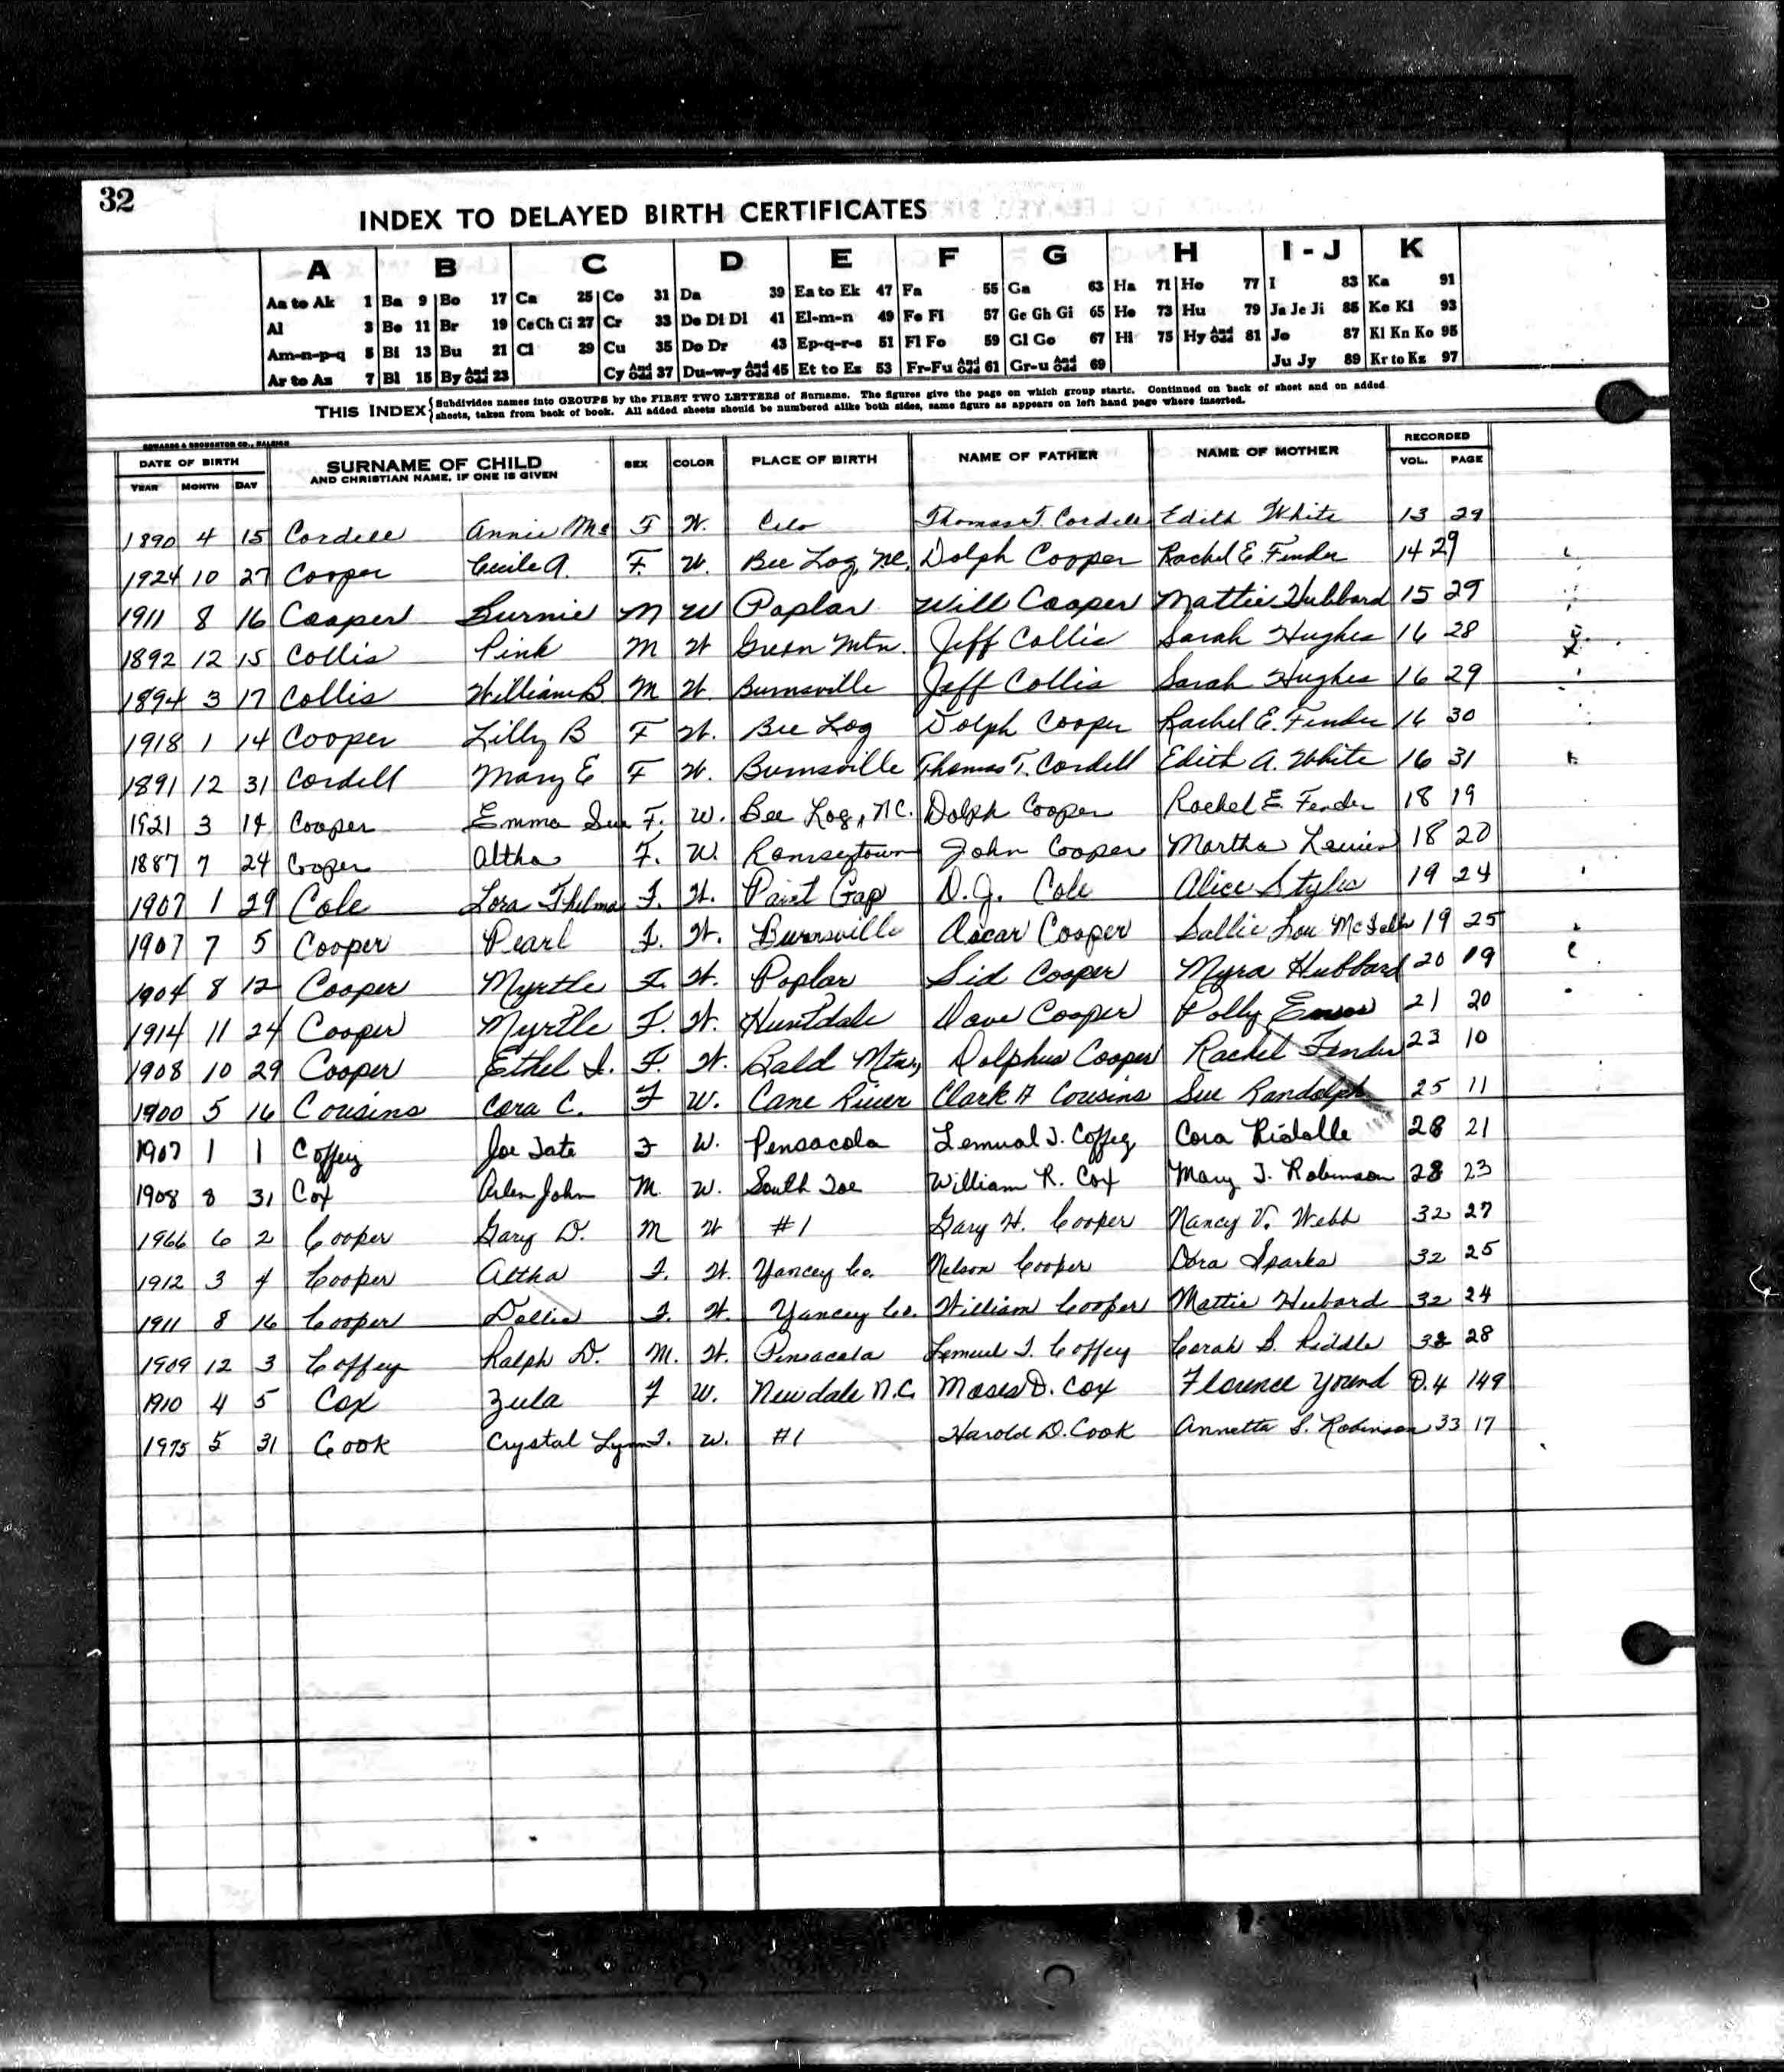 32
INDEX TO DELAYED BIRTH CERTIFICATES
A B C D E F G H I - J K
Aa to Ak 1 Ba 9 Bo 17 Ca 25 Co 31 Da 39 Ea to Ek 47 Fa 55 Ga 63 Ha 71 Ho 77 I 83 Ka 91
Al 3 Be 11 Br 19 Ce Ch Ci 27 Cr 33 De Di Dl 41 El-m-n 49 Fe Fi 57 Ge Gh Gi 65 He 73 Hu 79 Ja Je Ji 85 Ke Ki 93
Am-n-p-q 5 Bi 13 Bu 21 Cl 29 Cu 35 Do Dr 43 Ep-q-r-s 51 Fl Fo 59 Gl Go 67 Hi 75 Hy And Odd 81 Jo 87 Kl Kn Ko 95
Ar to Az 7 Bl 15 By And Odd 23 Cy And Odd 37 Du-w-y And Odd 45 Et to Ez 53 Fr-Fu And Odd 61 Gr-u And Odd 69 Ju Jy 89 Kr to Kz 97
THIS INDEX { Subdivides names into GROUPS by the FIRST TWO LETTERS of Surname. The figures give the page on which group starts. Continued on back of sheet and on added
sheets, taken from back of book. All added sheets should be numbered alike both sides, same figure as appears on left hand page where inserted.
EDWARDS & BROUGHTON CO., RALEIGH
DATE OF BIRTH SURNAME OF CHILD AND CHRISTIAN NAME, IF ONE IS GIVEN SEX COLOR PLACE OF BIRTH NAME OF FATHER NAME OF MOTHER RECORDED
YEAR MONTH DAY VOL. PAGE
1890 4 15 Cordell Annie F W. Celo Thomas T. Cordell Edith White 13 29
1924 10 27 Cooper Cecile A. F. W. Bee Log, NC. Dolph Cooper Rachel E. Fender 14 29
1911 8 16 Cooper Burnie M W Poplar Will Cooper Mattie Hubbard 15 29
1892 12 15 Collis Pink M W Green Mtn. Jeff Collis Sarah Hughes 16 28
1894 3 17 Collis William B. M W. Burnsville Jeff Collis Sarah Hughes 16 29
1918 1 14 Cooper Lilly B F W. Bee Log Dolph Cooper Rachel E. Fender 16 30
1891 12 31 Cordell Mary E F W. Burnsville Thomas T. Cordell Edith A. White 16 31
1921 3 14 Cooper Emma Sue F. W. Bee Log, N.C. Dolph Cooper Rachel E. Fender 18 19
1887 7 24 Cooper Altha F. W. Ramseytown John Cooper Martha 18 20
1907 1 29 Cole Lora Thelma F. W. Paint Gap D. J. Cole Alice Styles 19 24
1907 7 5 Cooper Pearl F. W. Burnsville Oscar Cooper Sallie Lou 19 25
1904 8 12 Cooper Myrtle F. W. Poplar Sid Cooper Myra Hubbard 20 19
1914 11 24 Cooper Myrtle F. W. Huntdale Dave Cooper Polly 21 20
1908 10 29 Cooper Ethel I. F. W. Bald Mtn, Dolphus Cooper Rachel Fender 23 10
1900 5 16 Cousins Cora C. F W. Cane River Clark A Cousins Sue Randolph 25 11
1907 1 1 Coffey Joe Tate F W. Pensacola Lemual T. Coffey Cora 28 21
1908 8 31 Cox Arlen John M. W. South Toe William R. Cox Mary J. Robinson 28 23
1966 6 2 Cooper Gary D. M W #1 Gary H. Cooper Nancy V. Webb 32 27
1912 3 4 Cooper Altha F. W. Yancey Co. Nelson Cooper Dora Sparks 32 25
1911 8 16 Cooper Dollie F. W. Yancey Co. William Cooper Mattie Hubard 32 24
1909 12 3 Coffey Ralph D. M. W. Pensacola Lemuel T. Coffey Corah S. Riddle 32 28
1910 4 5 Cox Zula F W. Newdale N.C. Moses D. Cox Florence Yound D.4 149
1975 5 31 Cook Crystal Lynn F. W. #1 Harold D. Cook Annetta S. Robinson 33 17